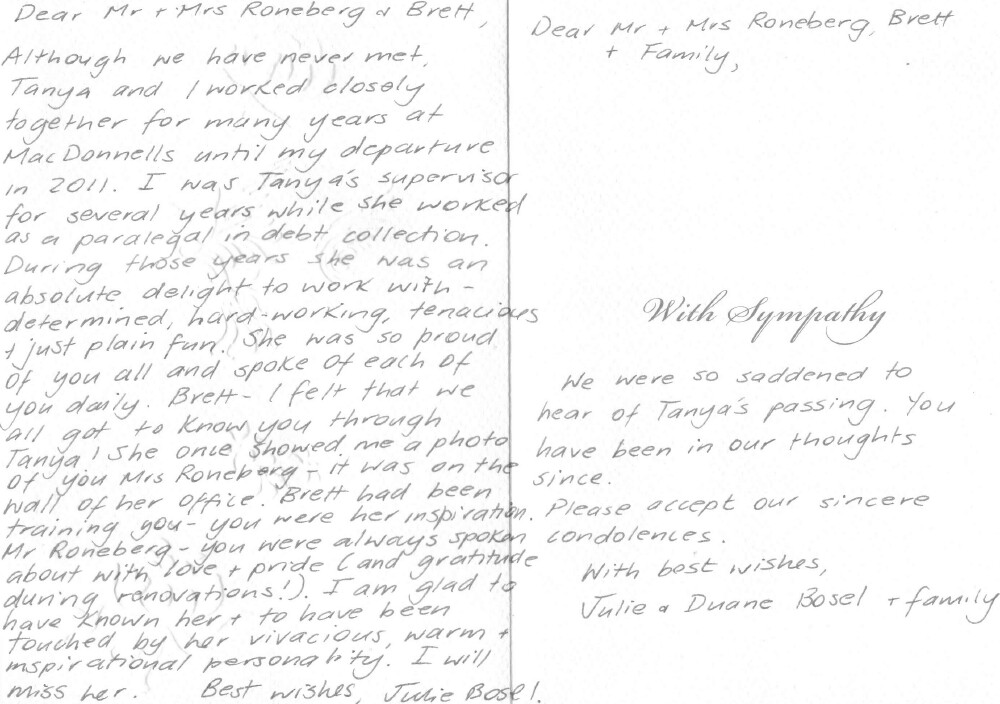 Dear Mr + Mrs Roneberg & Brett,
Although we have never met,
Tanya and I worked closely
together for many years at
MacDonnells until my departure
in 2011. I was Tanya's supervisor
for several years while she worked
as a paralegal in debt collection.
During those years she was an
absolute delight to work with -
determined, hard-working, tenacious
+ just plain fun. She was so proud
of you all and spoke of each of
you daily. Brett - I felt that we
all got to know you through
Tanya! She once showed me a photo
of you Mrs Roneberg - it was on the
wall of her office. Brett had been
training you - you were her inspiration.
Mr Roneberg - you were always spoken
about with love + pride (and gratitude
during renovations!). I am glad to
have known her + to have been
touched by her vivacious, warm +
inspirational personality. I will
miss her. Best wishes, Julie Bosel.
Dear Mr + Mrs Roneberg, Brett
+ Family,
With Sympathy
We were so saddened to
hear of Tanya's passing. You
have been in our thoughts
since.
Please accept our sincere
condolences.
With best wishes,
Julie & Duane Bosel + family